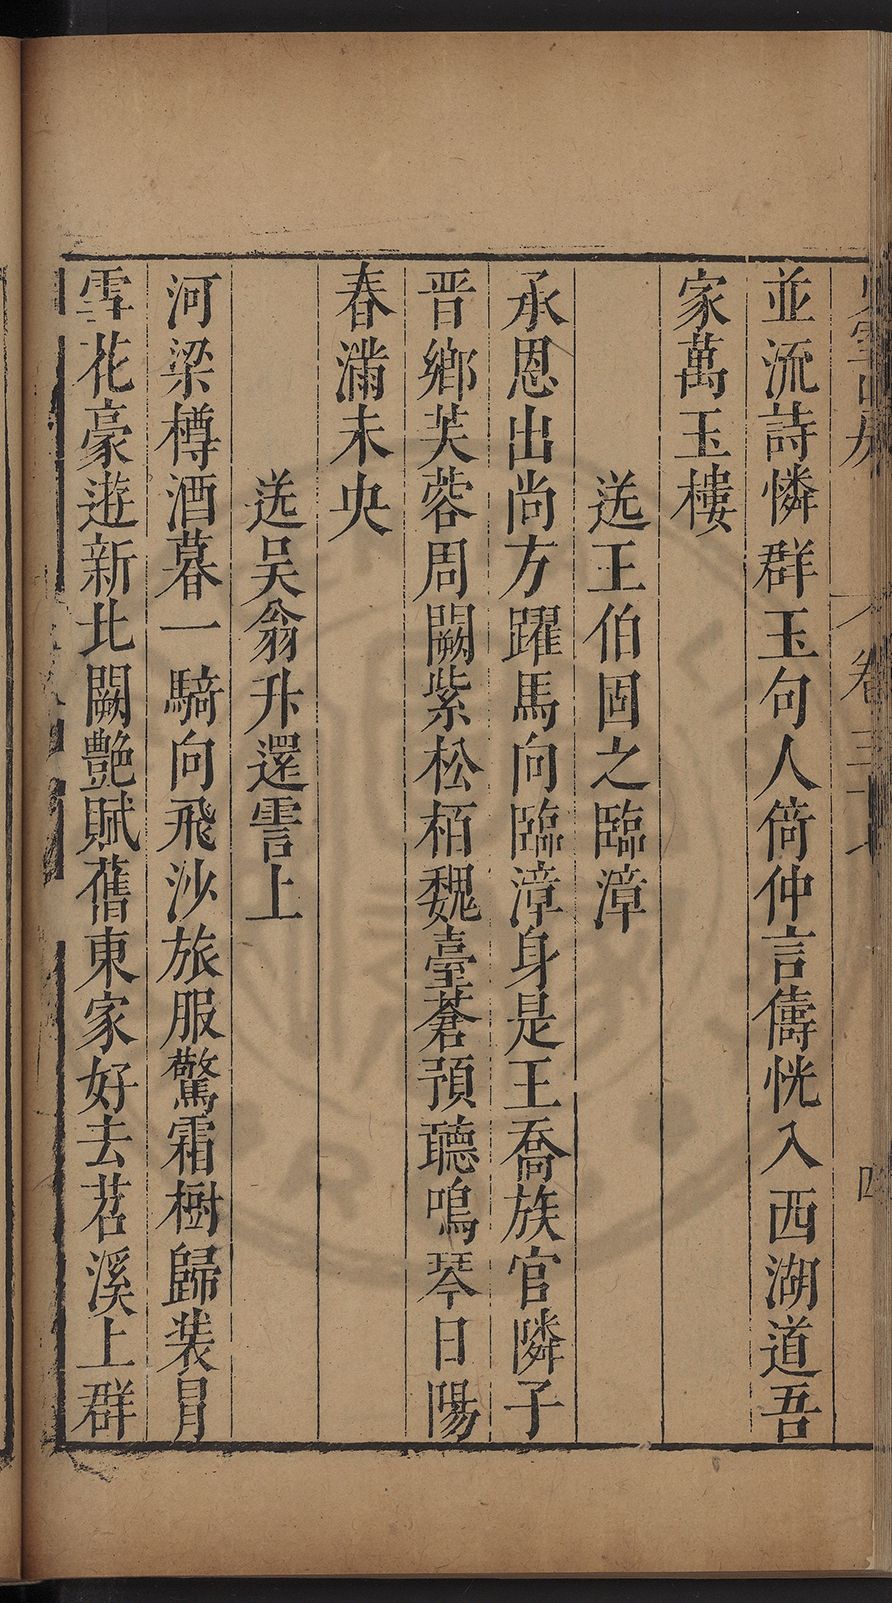 卷三十七
四
並流詩憐群玉句人倚仲言儔恍入西湖道吾
家萬玉樓
送王伯固之臨漳
承恩出尚方躍馬向臨漳身是王喬族官隣子
晋鄉芙蓉周闕紫松栢魏臺蒼預聽鳴琴日陽
春滿未央
送吳翁升還霅上
河梁樽酒暮一騎向飛沙旅服驚霜樹歸裝冐
雪花豪遊新北闕艷賦舊東家好去苕溪上群